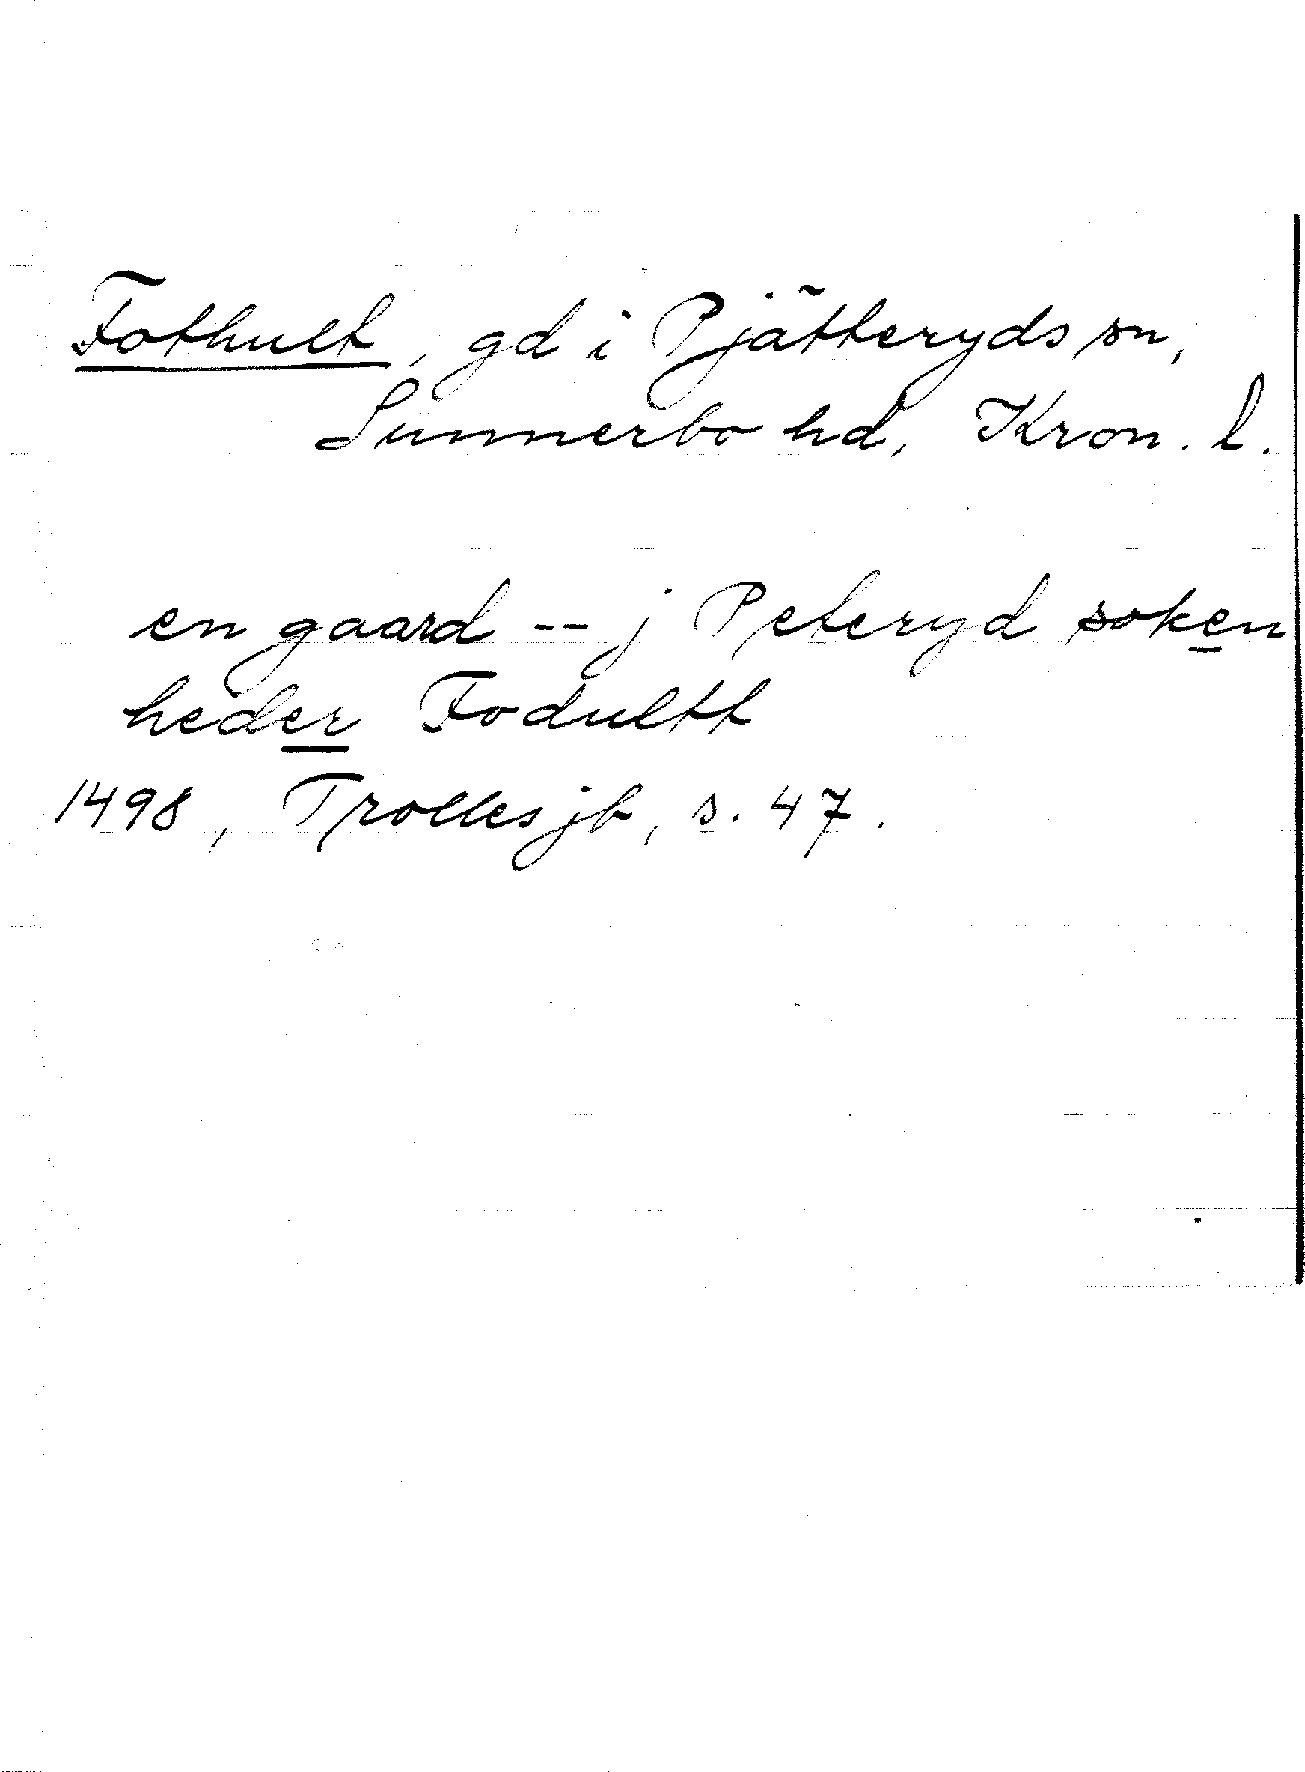 Fothult, gd i Pjätteryds sn,
Sunnerbo hd, Kron. l.
en gaard -- j Peteryd soken
heder Fodultt
1498, Trolles jb, s. 47.